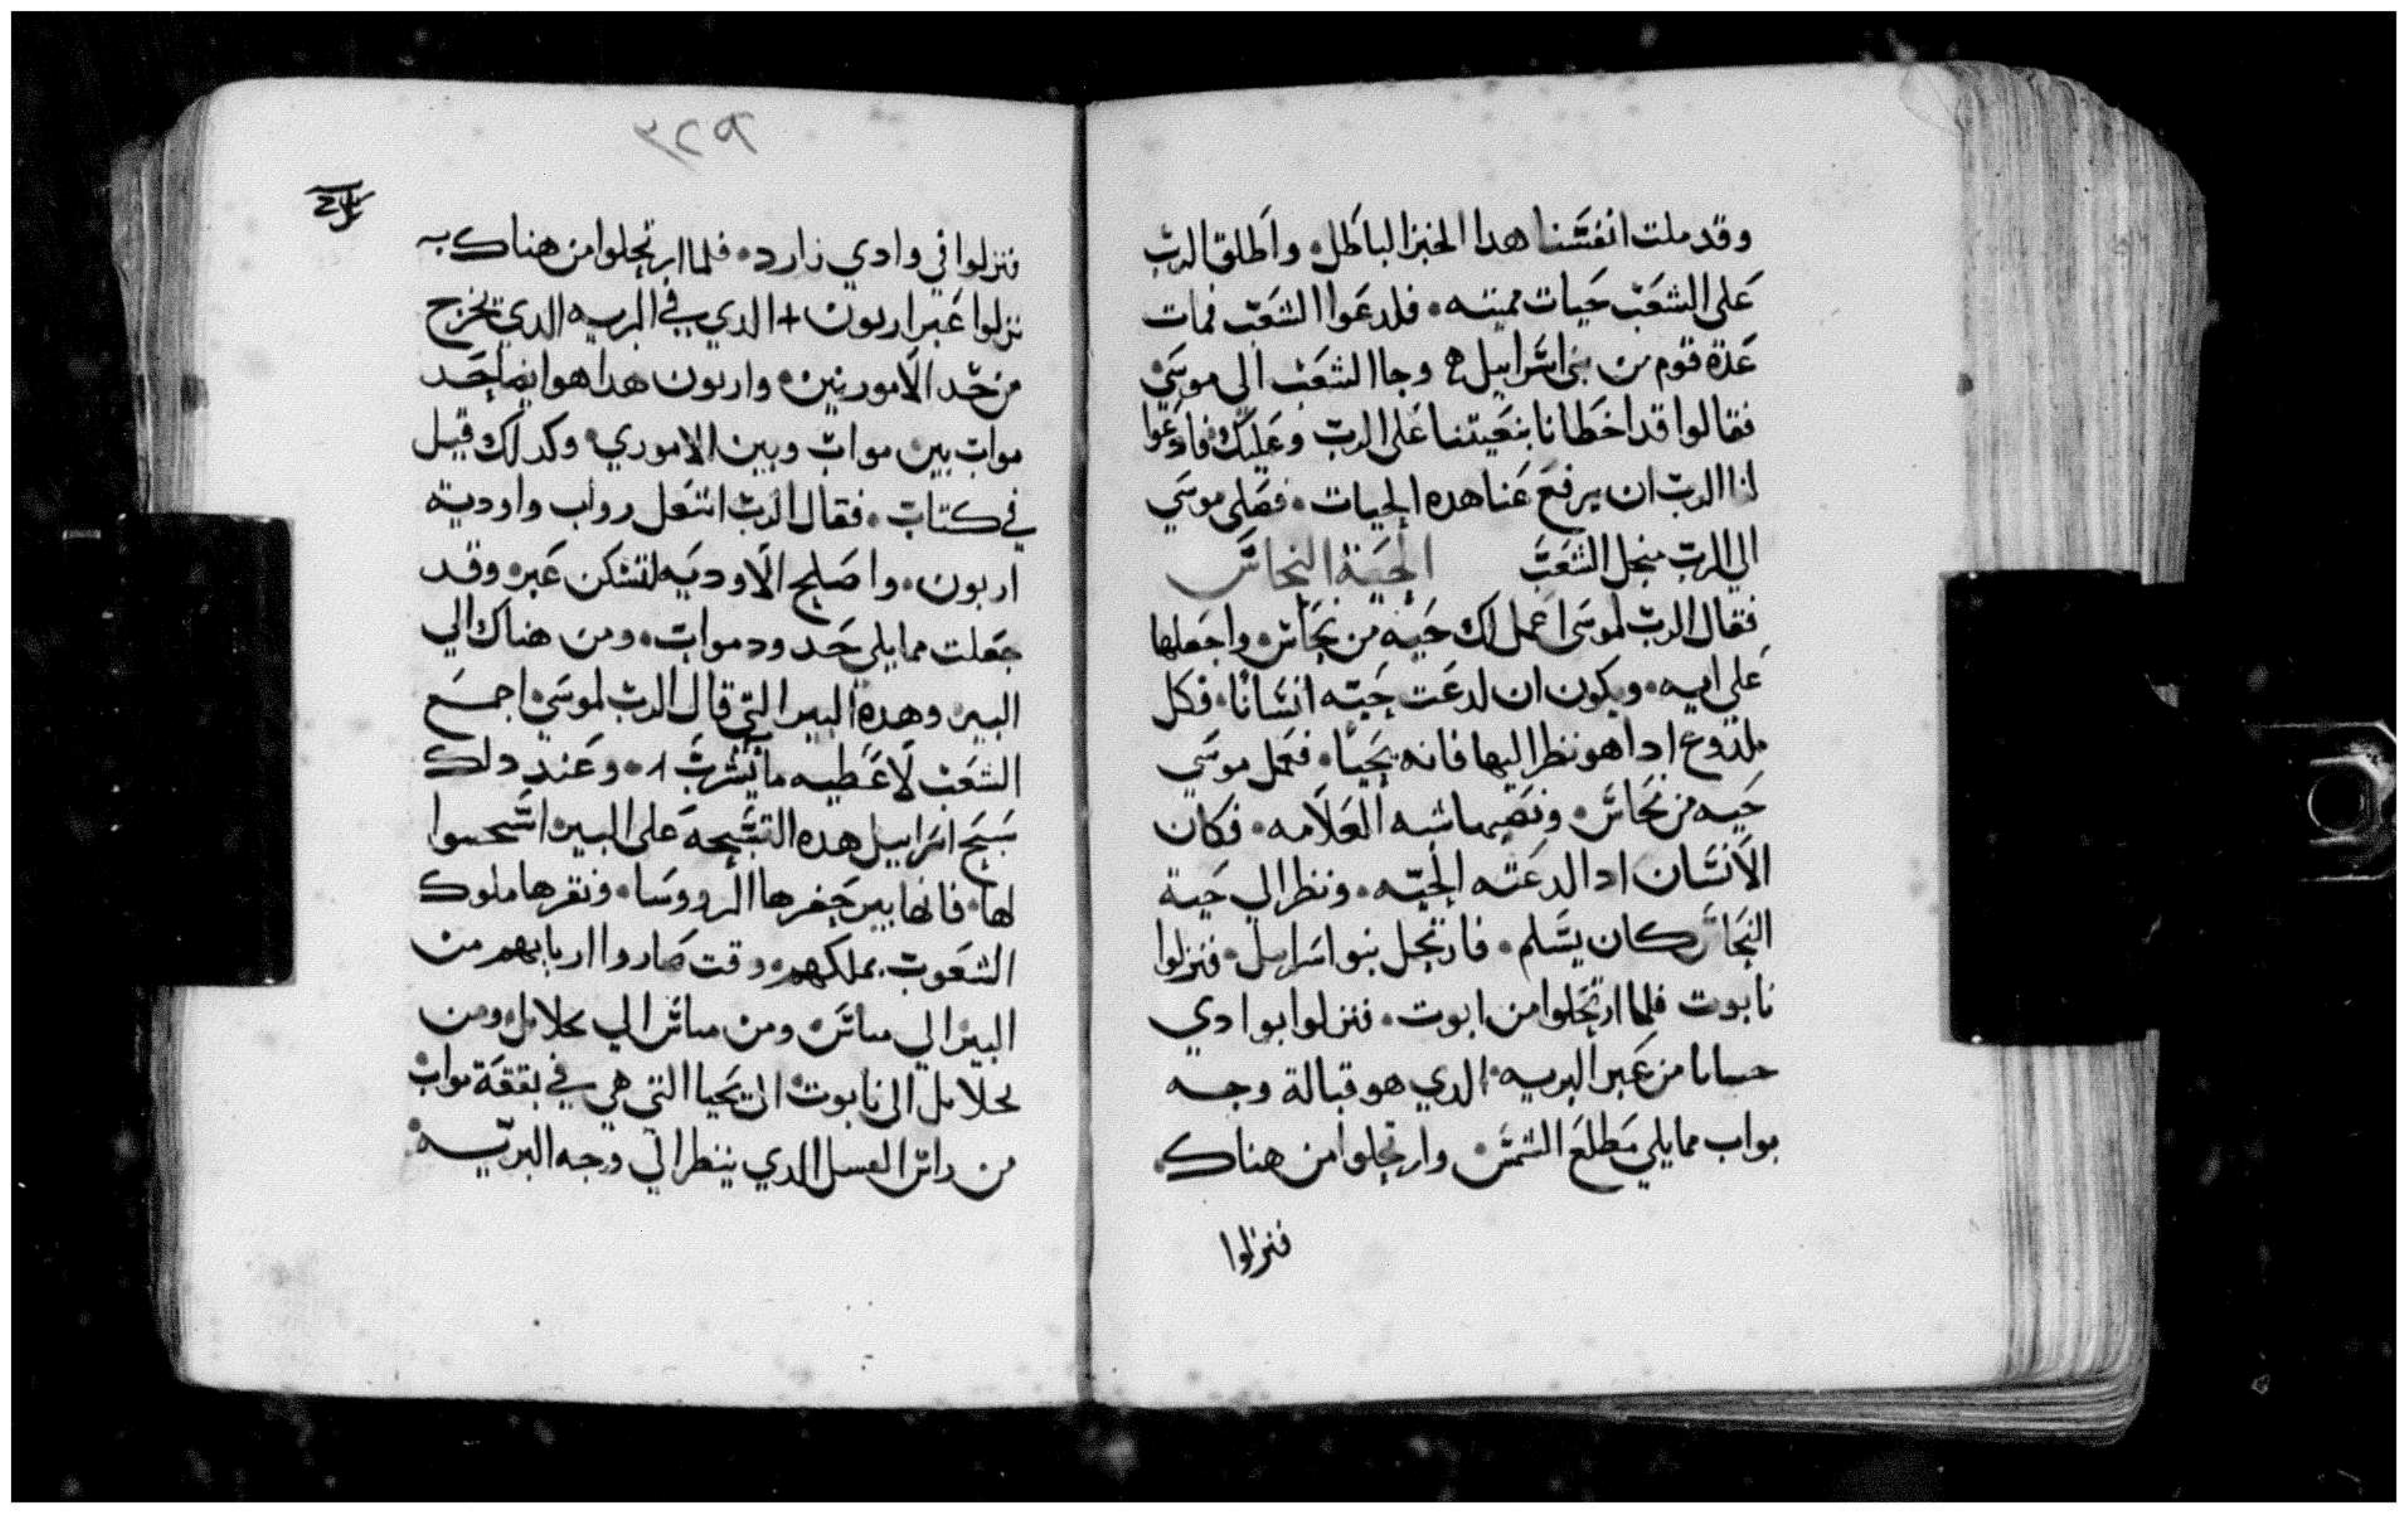 وقد ملت انفسنا هدا الخبز الباطل واطلق الرب
على الشعب حيات مميته. فلدعوا الشعب فمات
عدة قوم من بني اسراييل وجا الشعب الى موسى
فقالوا قد اخطانا بنعيتنا على الرب وعليك فادعوا
لنا الرب ان يرفع عنا هده الحيات. فصلى موسي
الي الرب منجل الشعب الحية النحاس
فقال الرب لموسى اعمل لك حيه من نحاس واجعلها
على ايه. ويكون ان لدعت حيه انسانا. فكل
ملدوع ادا هو نظر اليها فانه يحيا. فعمل موسي
حيه من نحاس. ونصبها شبه العلامه. فكان
الانسان ادا لدعته الحيه. ونظر الي حية
النحاس كان يسلم. فارتحل بنوا اسراييل. فنزلوا
نابوت فلما ارتحلوا من ابوت. فنزلوا بوادي
حسانا من عبر البريه. الدي هو قبالة وجه
مواب مما يلي مطلع الشمس وارتحلوا من هناك
فنزلوا
٣٢٩
فنزلوا في وادي زارد. فلما ارتحلوا من هناك به
نزلوا عبر اربون + الدي في البريه الدي تخرج
من حد الامورنيين. واربون هدا هو ايضا حد
مواب بين مواب وبين الاموري. وكدلك قيل
في كتاب. فقال الرب انتعل رواب واودية
اربون. واصلح الاوديه لتسكن عبره وقد
جعلت مما يلي حدود مواب. ومن هناك الي
البير وهده البير التي قال الرب لموسي اجمع
الشعب لاعطيه ما يشرب. وعند دلك
سبح اسراييل هده التسبحه على البير اسحسوا
لها. فانها بير حفرها الرووسا. ونقرها ملوك
الشعوب بملكهم. وقت صاروا اربابهم من
البير الي ساس ومن ساس الي بحلامل ومن
بحلامل الى نابوت الى يحيا التي هي في بقعة مواب
من راس العسل الدي ينظر الى وجه البريه